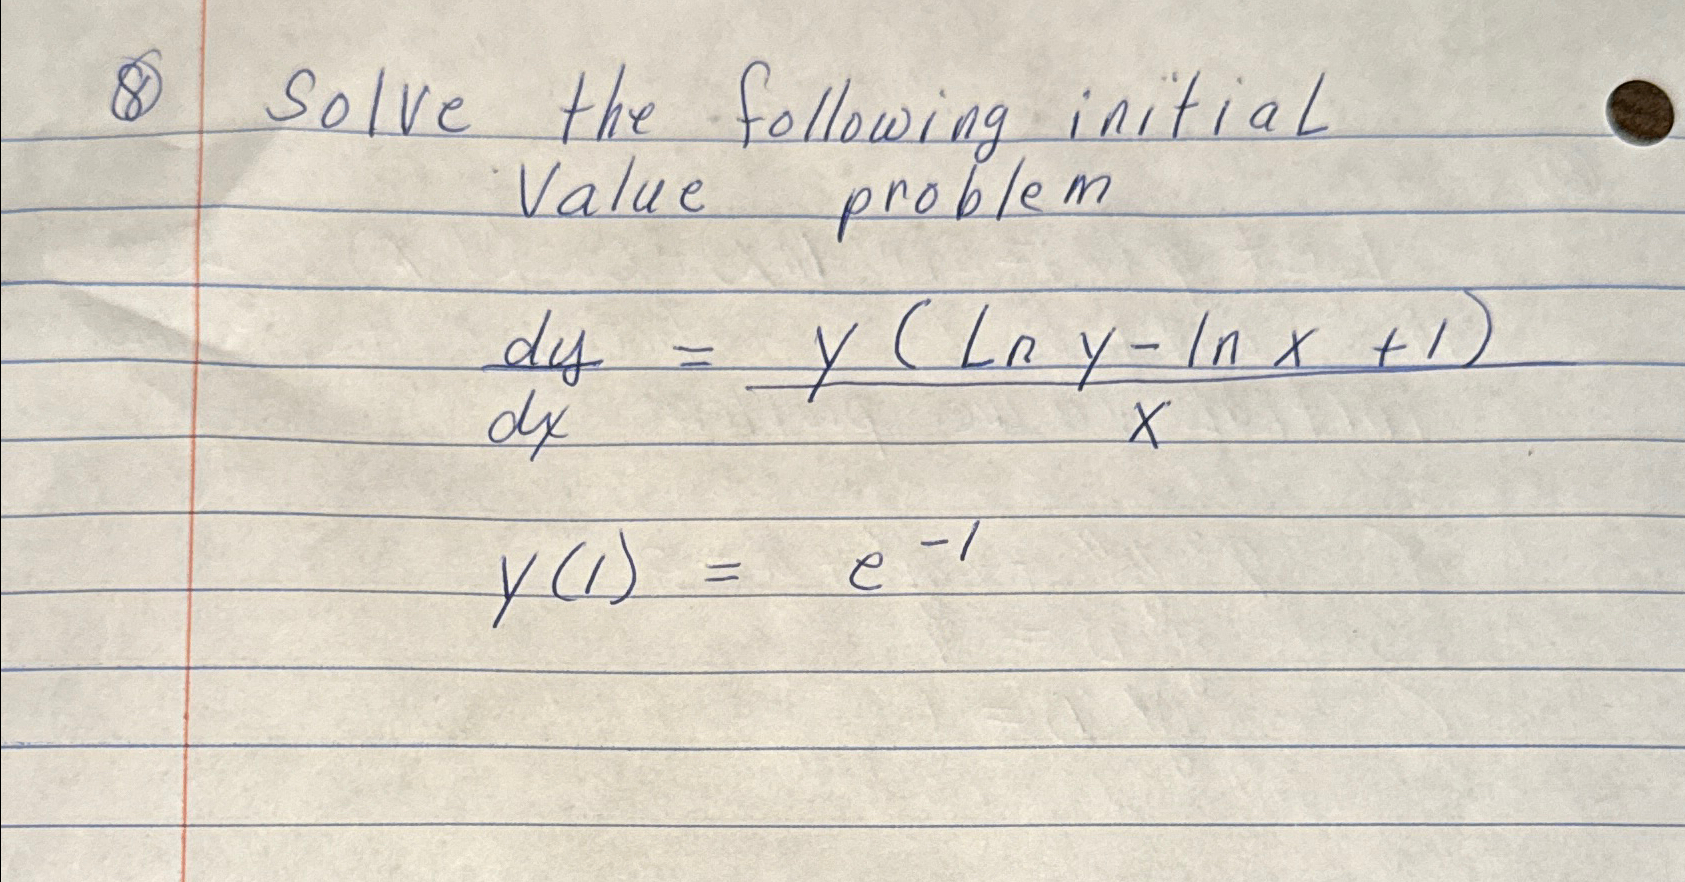 ⑧ Solve the following initial
Value problem
dy/dx = y(Ln y - ln x + 1)/x
y(1) = e^-1